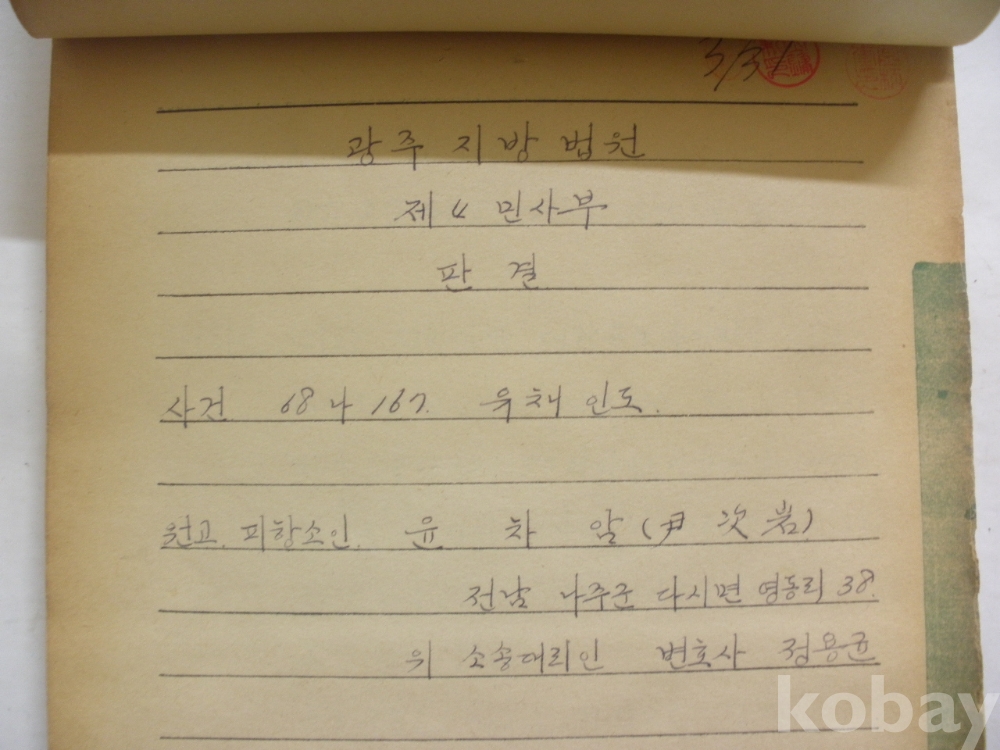 3/31
광주 지방 법원
제 4 민사부
판 결
사건 68 나 167. 유체 인도.
원고. 피항소인. 윤 차 암 (尹 次 岩)
전남 나주군 다시면 영동리 38.
위 소송대리인 변호사 정용균
kobay